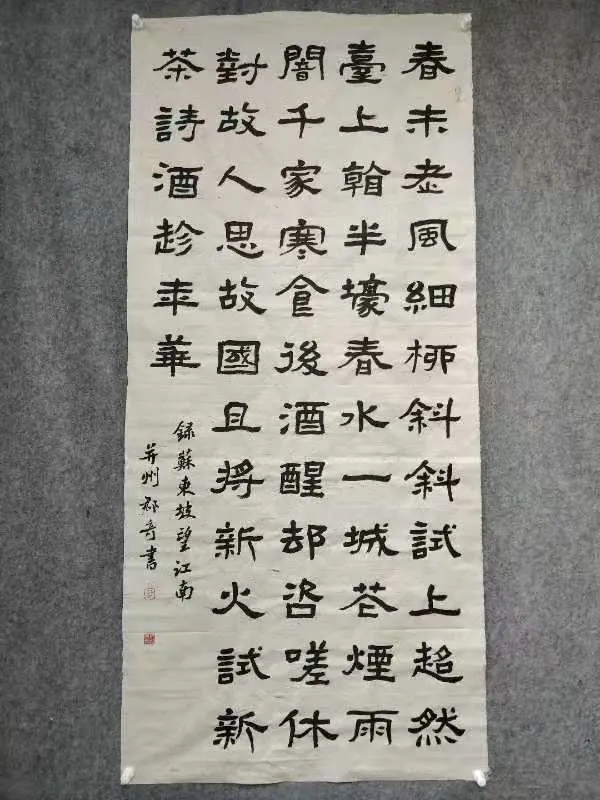 春未老風細柳斜斜試上超然
臺上看半壕春水一城花煙雨
闇千家寒食後酒醒却咨嗟休
對故人思故國且將新火試新
茶詩酒趁年華
録蘇東坡望江南
并州奇書